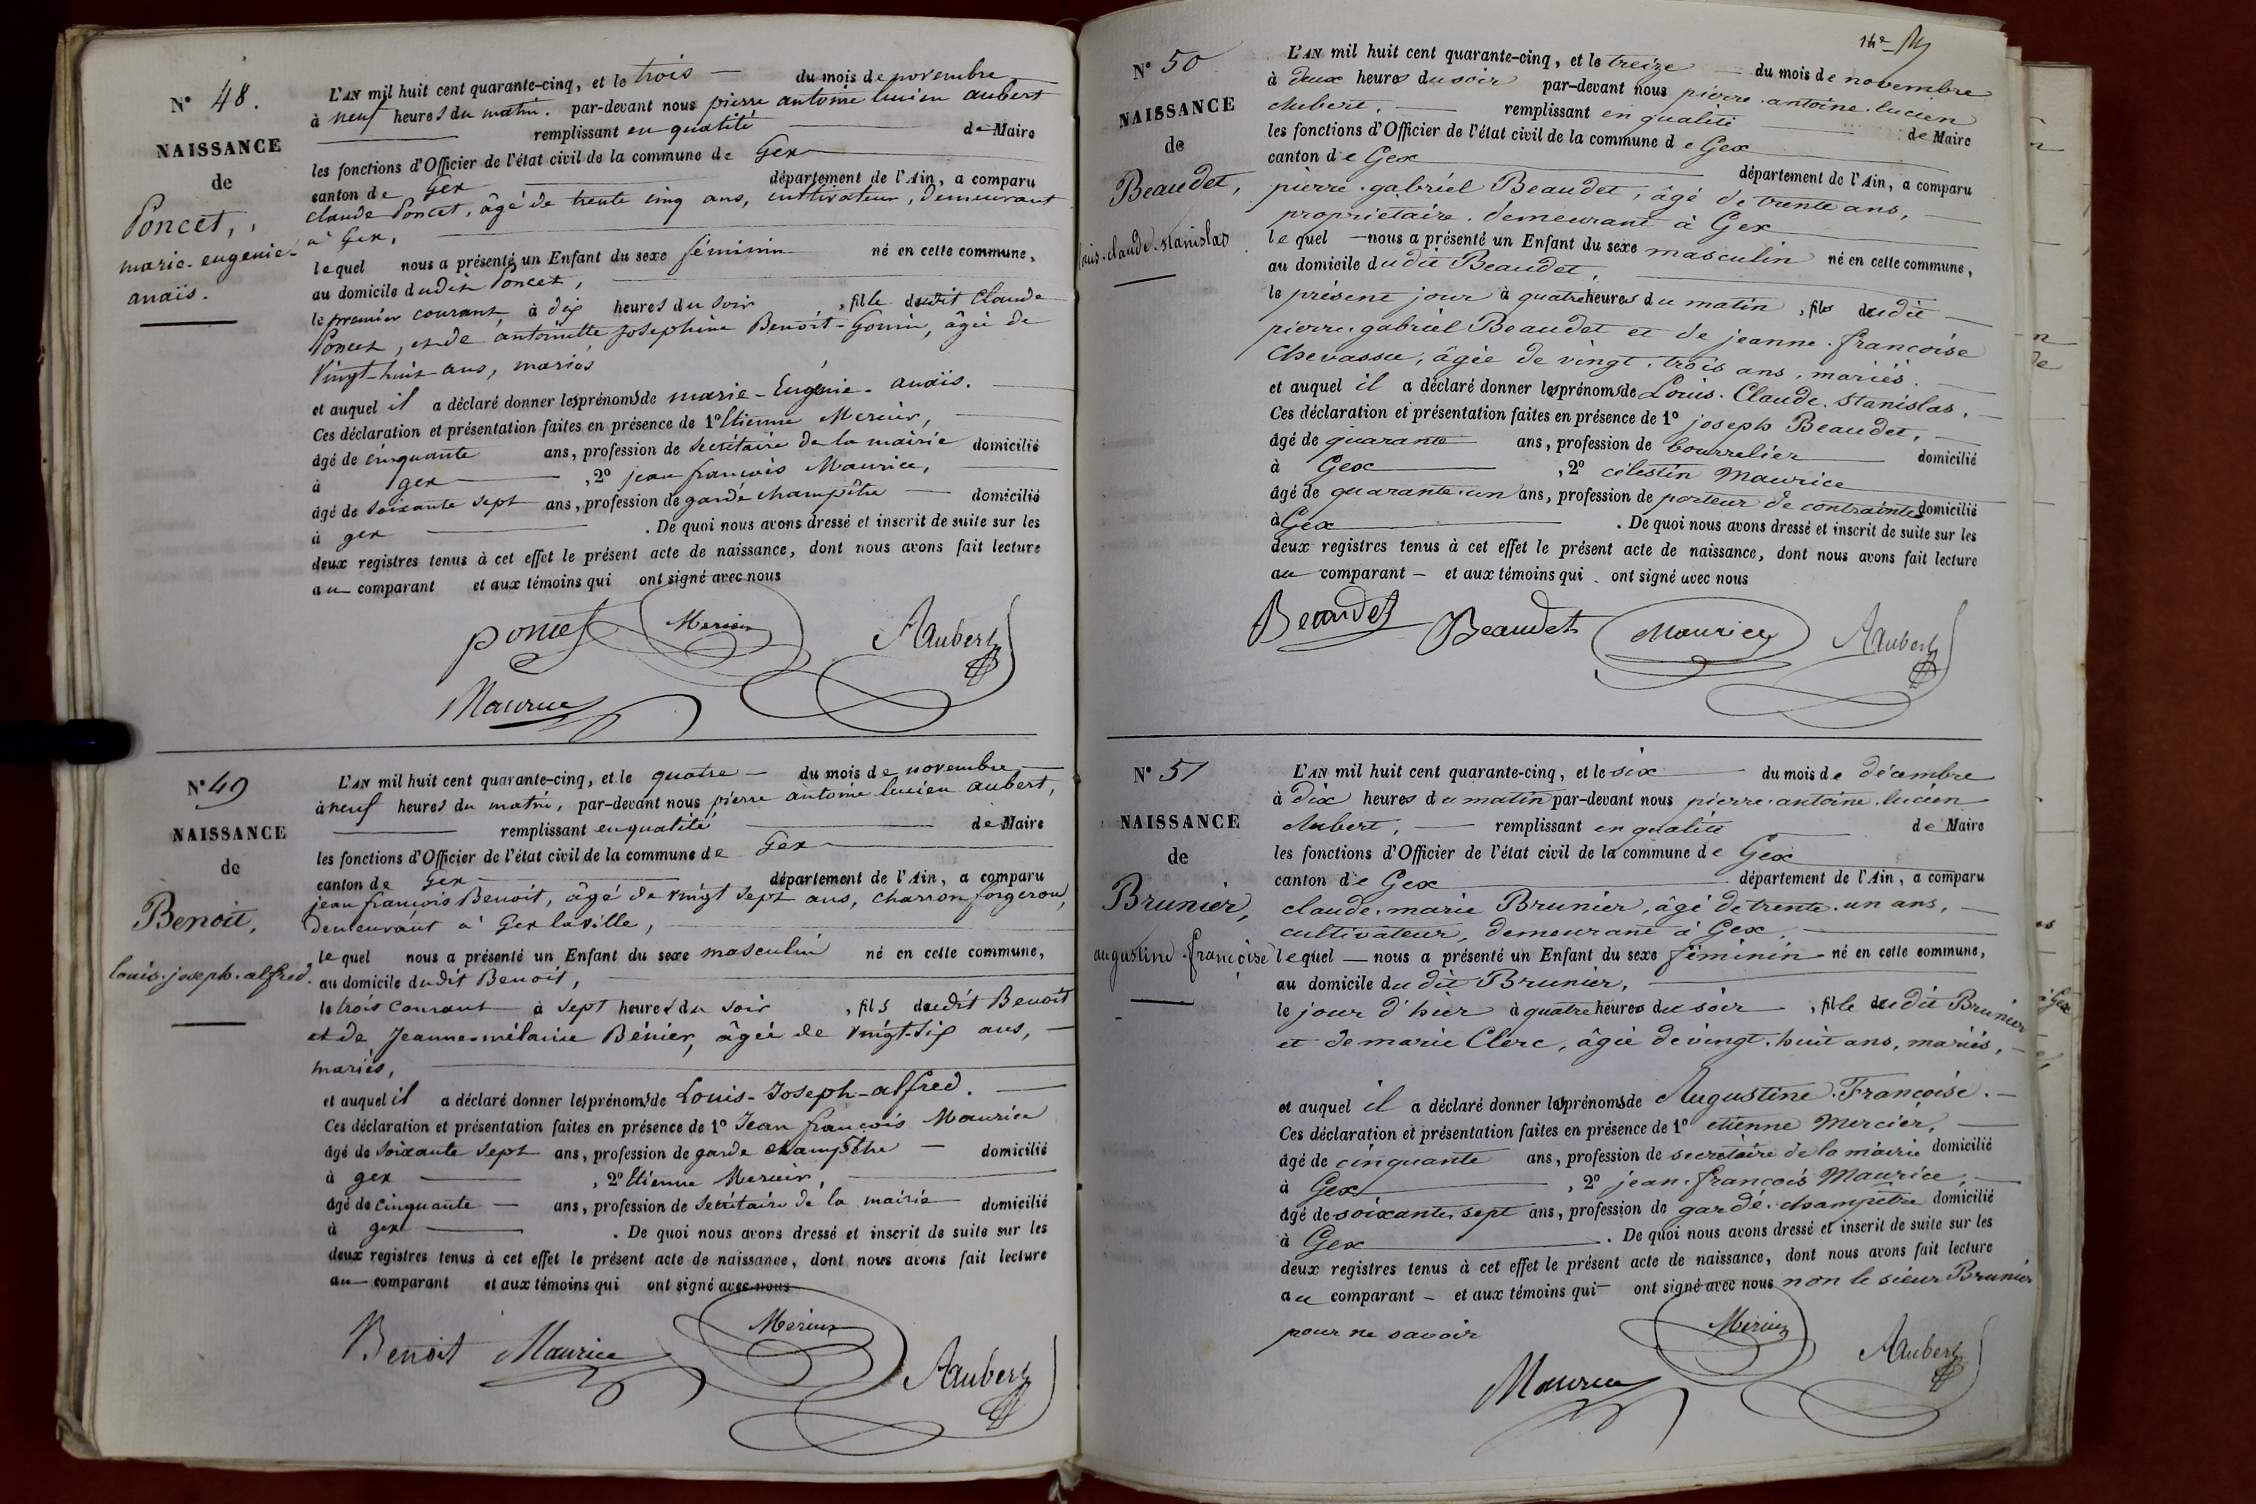 N° 48.
NAISSANCE
de
Poncet,
marie-eugenie-
anaïs.
L'AN mil huit cent quarante-cinq, et le trois — du mois de novembre
à neuf heures du matin. par-devant nous pierre antoine lucien aubert
remplissant en qualité de Maire
les fonctions d'Officier de l'état civil de la commune de Gex
canton de Gex département de l'Ain, a comparu
claude Poncet, âgé de trente cinq ans, cultivateur, demeurant
à Gex,
lequel nous a présenté un Enfant du sexe féminin né en cette commune,
au domicile dudit Poncet,
le premier courant, à dix heures du soir, fille dudit Claude
Poncet, et de antoinette josephine Benoit-Gonin, âgée de
vingt-huit ans, mariés
et auquel il a déclaré donner les prénoms de marie-Eugénie-anaïs.
Ces déclaration et présentation faites en présence de 1° Etienne Mercier,
âgé de cinquante ans, profession de secrétaire de la mairie domicilié
à gex, 2° jean françois Maurice,
âgé de soixante sept ans, profession de garde champêtre — domicilié
à gex. De quoi nous avons dressé et inscrit de suite sur les
deux registres tenus à cet effet le présent acte de naissance, dont nous avons fait lecture
au comparant et aux témoins qui ont signé avec nous
Poncet Mercier AAubert
Maurice
N° 49
NAISSANCE
de
Benoit,
louis-joseph-alfred.
L'AN mil huit cent quarante-cinq, et le quatre — du mois de novembre
à neuf heures du matin, par-devant nous pierre antoine lucien aubert,
remplissant en qualité de Maire
les fonctions d'Officier de l'état civil de la commune de Gex
canton de Gex département de l'Ain, a comparu
jean françois Benoit, âgé de vingt sept ans, charron forgeron,
demeurant à Gex la ville,
lequel nous a présenté un Enfant du sexe masculin né en cette commune,
au domicile dudit Benoit,
le trois courant à sept heures du soir, fils dudit Benoit
et de Jeanne-mélanie Bénier, âgée de vingt-six ans,
mariés,
et auquel il a déclaré donner les prénoms de Louis-Joseph-alfred.
Ces déclaration et présentation faites en présence de 1° Jean françois Maurice
âgé de soixante sept ans, profession de garde champêtre — domicilié
à gex, 2° Etienne Mercier,
âgé de cinquante — ans, profession de secrétaire de la mairie domicilié
à gex. De quoi nous avons dressé et inscrit de suite sur les
deux registres tenus à cet effet le présent acte de naissance, dont nous avons fait lecture
au comparant et aux témoins qui ont signé avec nous
Benoit Maurice Mercier AAubert
N° 50
NAISSANCE
de
Beaudet,
louis-claude-stanislas
L'AN mil huit cent quarante-cinq, et le treize — du mois de novembre
à deux heures du soir par-devant nous pierre-antoine-lucien
Aubert, — remplissant en qualité de Maire
les fonctions d'Officier de l'état civil de la commune de Gex
canton de Gex département de l'Ain, a comparu
pierre-gabriel Beaudet, âgé de trente ans,
propriétaire, demeurant à Gex
lequel — nous a présenté un Enfant du sexe masculin né en cette commune,
au domicile dudit Beaudet,
le présent jour à quatre heures du matin, fils dudit
pierre-gabriel Beaudet et de jeanne-françoise
Chevassu, âgée de vingt-trois ans, mariés.
et auquel il a déclaré donner les prénoms de Louis-Claude-Stanislas.
Ces déclaration et présentation faites en présence de 1° joseph Beaudet,
âgé de quarante ans, profession de bourrelier domicilié
à Gex, 2° célestin Maurice
âgé de quarante-un ans, profession de porteur de contraintes domicilié
à Gex. De quoi nous avons dressé et inscrit de suite sur les
deux registres tenus à cet effet le présent acte de naissance, dont nous avons fait lecture
au comparant — et aux témoins qui ont signé avec nous
Beaudet Beaudet Maurice AAubert
N° 51
NAISSANCE
de
Brunier,
augustine-françoise
L'AN mil huit cent quarante-cinq, et le six du mois de décembre
à dix heures du matin par-devant nous pierre-antoine-lucien
Aubert, — remplissant en qualité de Maire
les fonctions d'Officier de l'état civil de la commune de Gex
canton de Gex département de l'Ain, a comparu
claude-marie Brunier, âgé de trente-un ans,
cultivateur, demeurant à Gex,
lequel — nous a présenté un Enfant du sexe féminin né en cette commune,
au domicile dudit Brunier,
le jour d'hier à quatre heures du soir, fille dudit Brunier
et de marie Clerc, âgée de vingt-huit ans, mariés,
et auquel il a déclaré donner les prénoms de Augustine-Françoise.
Ces déclaration et présentation faites en présence de 1° etienne Mercier,
âgé de cinquante ans, profession de secrétaire de la mairie domicilié
à Gex, 2° jean-françois Maurice,
âgé de soixante-sept ans, profession de garde-champêtre domicilié
à Gex. De quoi nous avons dressé et inscrit de suite sur les
deux registres tenus à cet effet le présent acte de naissance, dont nous avons fait lecture
au comparant — et aux témoins qui — ont signé avec nous non le sieur Brunier
pour ne savoir
Mercier AAubert
Maurice